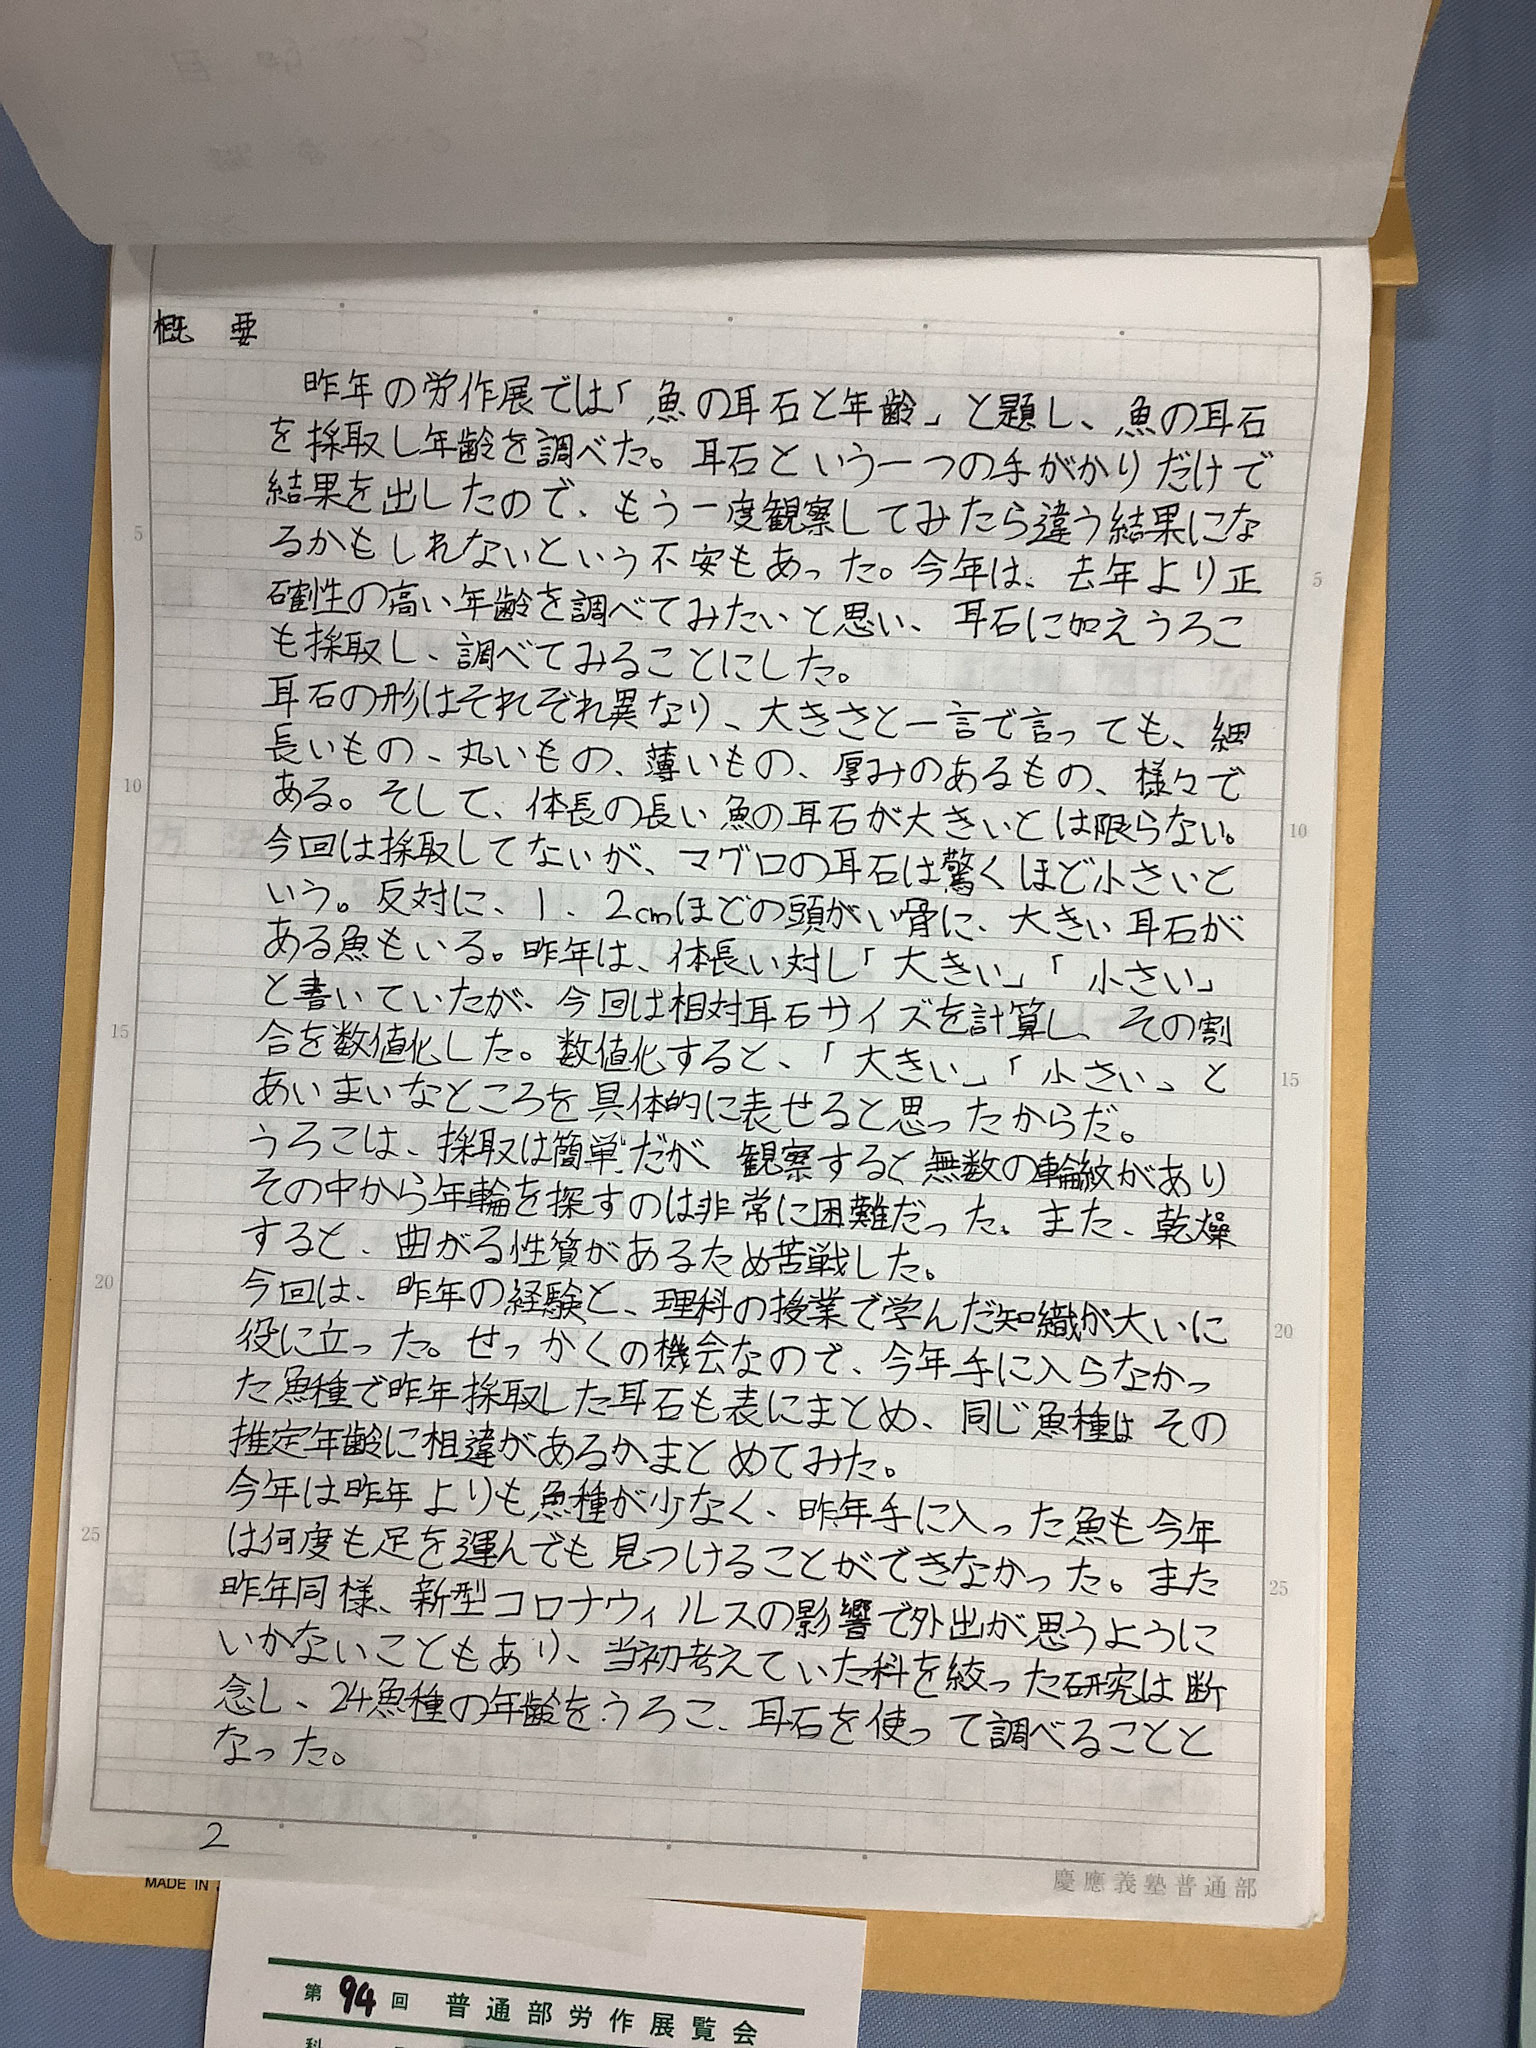 概 要
昨年の労作展では「魚の耳石と年齢」と題し、魚の耳石
を採取し年齢を調べた。耳石という一つの手がかりだけで
結果を出したので、もう一度観察してみたら違う結果にな
るかもしれないという不安もあった。今年は、去年より正
確性の高い年齢を調べてみたいと思い、耳石に加えうろこ
も採取し、調べてみることにした。
耳石の形はそれぞれ異なり、大きさと一言で言っても、細
長いもの、丸いもの、薄いもの、厚みのあるもの、様々で
ある。そして、体長の長い魚の耳石が大きいとは限らない。
今回は採取してないが、マグロの耳石は驚くほど小さいと
いう。反対に、1、2cmほどの頭がい骨に、大きい耳石が
ある魚もいる。昨年は、体長い対し「大きい」「小さい」
と書いていたが、今回は相対耳石サイズを計算し、その割
合を数値化した。数値化すると、「大きい」「小さい」と
あいまいなところを具体的に表せると思ったからだ。
うろこは、採取は簡単だが 観察すると無数の輪紋があり
その中から年輪を探すのは非常に困難だった。また、乾燥
すると、曲がる性質があるため苦戦した。
今回は、昨年の経験と、理科の授業で学んだ知識が大いに
役に立った。せっかくの機会なので、今年手に入らなかっ
た魚種で昨年採取した耳石も表にまとめ、同じ魚種はその
推定年齢に相違があるかまとめてみた。
今年は昨年よりも魚種が少なく、昨年手に入った魚も今年
は何度も足を運んでも見つけることができなかった。また
昨年同様、新型コロナウィルスの影響で外出が思うように
いかないこともあり、当初考えていた科を絞った研究は断
念し、24魚種の年齢をうろこ、耳石を使って調べることと
なった。
5
10
15
20
25
5
10
15
20
25
2
慶應義塾普通部
MADE IN
第94回 普通部労作展覧会
科